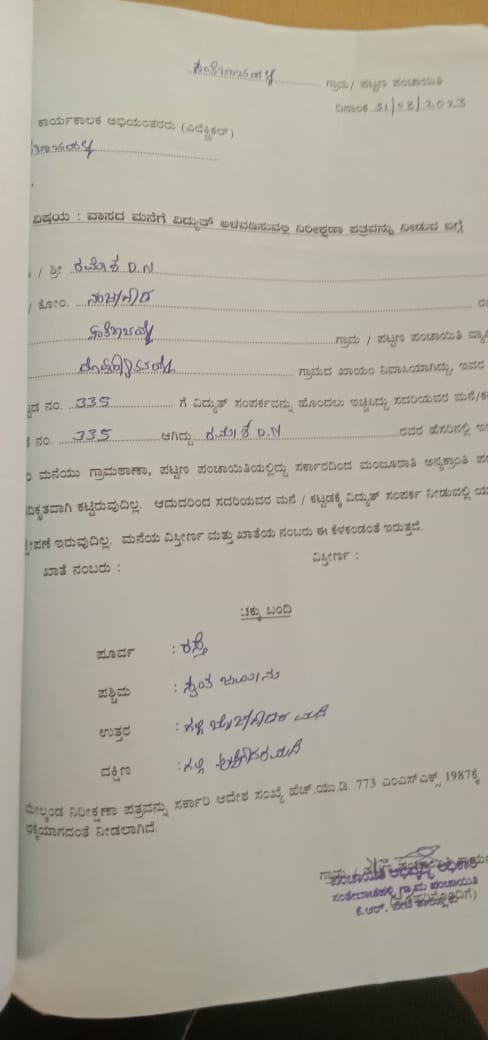 ಗ್ರಾಮ/ ಪಟ್ಟಣ ಪಂಚಾಯಿತಿ
ದಿನಾಂಕ 31/08/2023
ಕಾರ್ಯಕಾಲಕ ಅಭಿಯಂತರರು (ಎಲೆಕ್ಟ್ರಿಕಲ್)
ವಿಷಯ : ವಾಸದ ಮನೆಗೆ ವಿದ್ಯುತ್ ಅಳವಡಿಸುವಲ್ಲಿ ನಿರೀಕ್ಷಣಾ ಪತ್ರವನ್ನು ನೀಡುವ ಬಗ್ಗೆ
/ ಶ್ರೀ ರಮೇಶ D.N
/ ಕೋಂ. ನಂಜೇಗೌಡ
ಗ್ರಾಮ / ಪಟ್ಟಣ ಪಂಚಾಯಿತಿ ವ್ಯಾ
ಗ್ರಾಮದ ಖಾಯಂ ನಿವಾಸಿಯಾಗಿದ್ದು, ಇವರ
ನಂ. 335 ಗೆ ವಿದ್ಯುತ್ ಸಂಪರ್ಕವನ್ನು ಹೊಂದಲು ಇಚ್ಛಿಸಿದ್ದು ಸದರಿಯವರ ಮನೆ/ಕ
ನಂ. 335 ಆಗಿದ್ದು ರಮೇಶ D.N ರವರ ಹೆಸರಿನಲ್ಲಿ ಇ
ಮನೆಯು ಗ್ರಾಮಠಾಣಾ, ಪಟ್ಟಣ ಪಂಚಾಯಿತಿಯಲ್ಲಿದ್ದು ಸರ್ಕಾರದಿಂದ ಮಂಜೂರಾತಿ ಅನ್ಯಕ್ರಾಂತಿ ಪ
ದಿಕೃತವಾಗಿ ಕಟ್ಟಿರುವುದಿಲ್ಲ. ಆದುದರಿಂದ ಸದರಿಯವರ ಮನೆ / ಕಟ್ಟಡಕ್ಕೆ ವಿದ್ಯುತ್ ಸಂಪರ್ಕ ನೀಡುವಲ್ಲಿ ಯ
ಕ್ಷೇಪಣೆ ಇರುವುದಿಲ್ಲ. ಮನೆಯ ವಿಸ್ತೀರ್ಣ ಮತ್ತು ಖಾತೆಯ ನಂಬರು ಈ ಕೆಳಕಂಡಂತೆ ಇರುತ್ತದೆ.
ಖಾತೆ ನಂಬರು : ವಿಸ್ತೀರ್ಣ :
ಚಕ್ಕು ಬಂದಿ
ಪೂರ್ವ : ರಸ್ತೆ
ಪಶ್ಚಿಮ : ಸ್ವಂತ ಜಮೀನು
ಉತ್ತರ : ಗಲ್ಲಿ ಮನೆ
ದಕ್ಷಿಣ : ಗಲ್ಲಿ ಮನೆ
ಮೇಲ್ಕಂಡ ನಿರೀಕ್ಷಣಾ ಪತ್ರವನ್ನು ಸರ್ಕಾರಿ ಆದೇಶ ಸಂಖ್ಯೆ ಹೆಚ್.ಯು.ಡಿ. 773 ಎಂಎನ್ಎಕ್ಸ್ 1987ಕ್ಕೆ
ಧಕ್ಕೆಯಾಗದಂತೆ ನೀಡಲಾಗಿದೆ.
ಪಂಚಾಯಿತಿ ಅಭಿವೃದ್ಧಿ ಅಧಿಕಾರಿ
ಸಂತೇಬಾಚಹಳ್ಳಿ ಗ್ರಾಮ ಪಂಚಾಯಿತಿ
ಕೆ.ಆರ್. ಪೇಟೆ ತಾಲ್ಲೂಕು